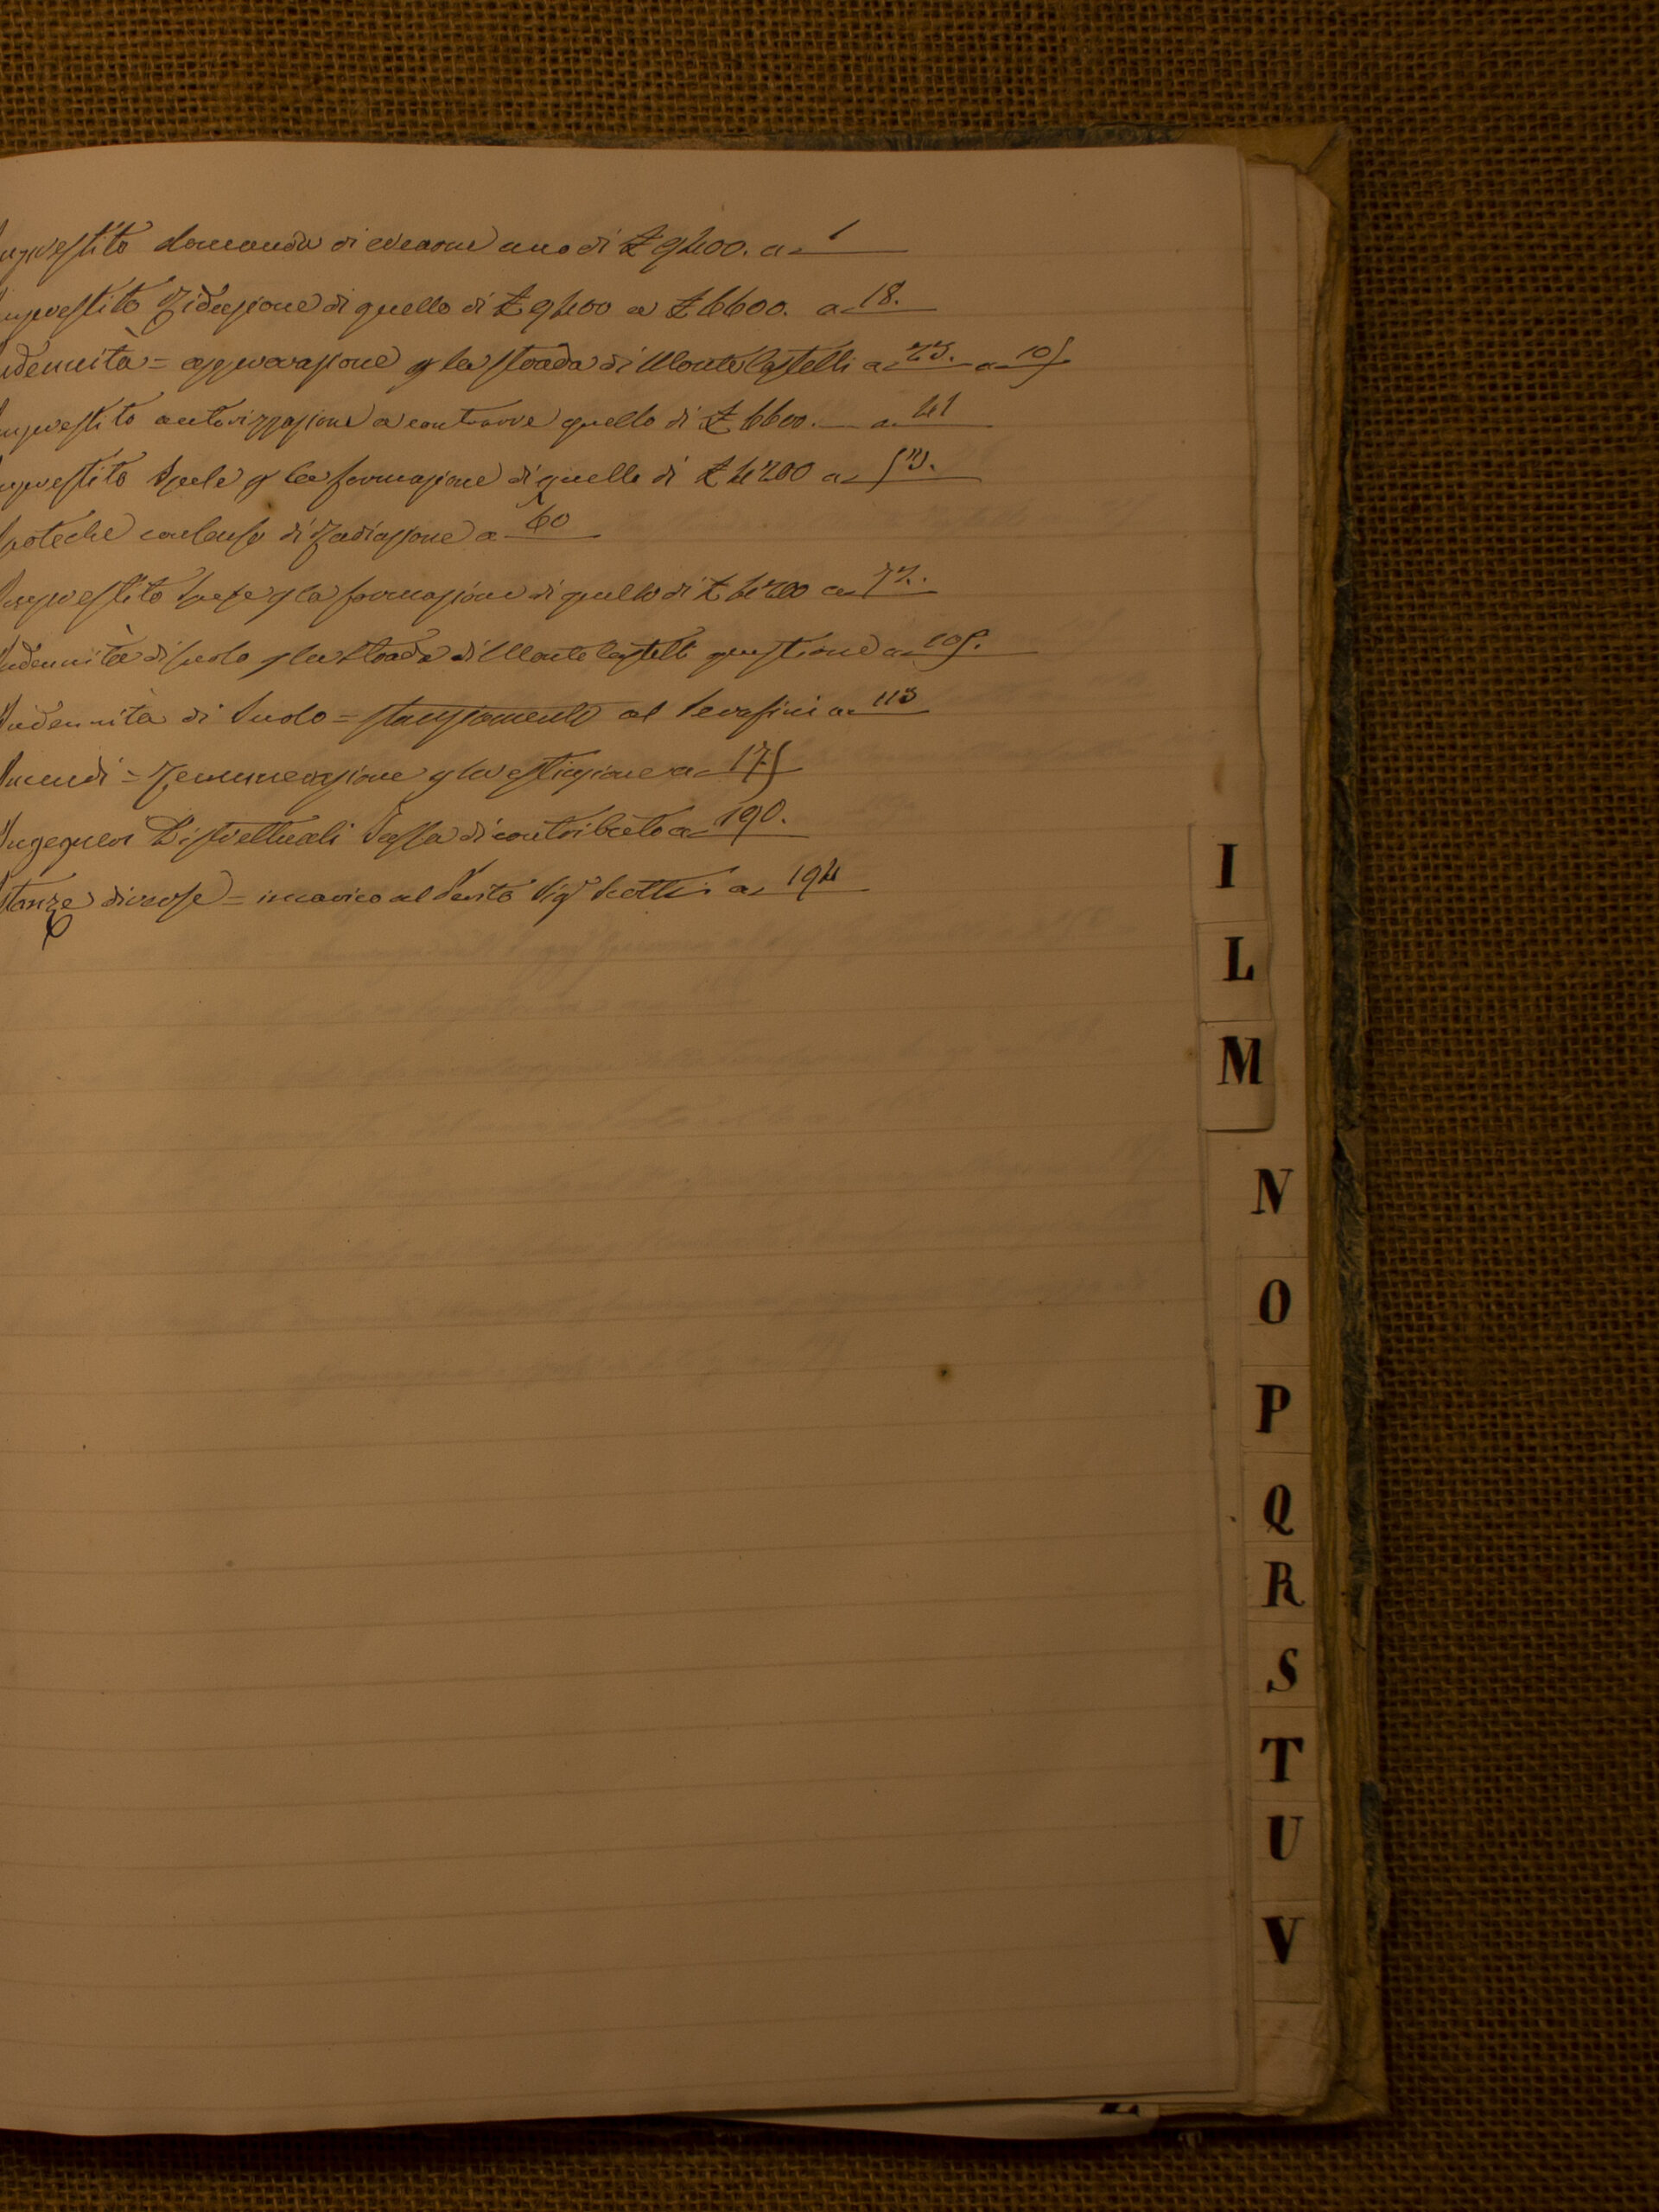 mprestito domanda di crearne uno di £ 9400. a 1
mprestito Riduzione di quello di £ 9400 a £ 6600. a 18.
ndennità = approvazione p la strada di Monte Castelli a 23. a 105
mprestito autorizzazione a contrarre quello di £ 6600. a 41
mprestito Spese p la formazione di quello di £ 4200 a 53.
poteche consenso di Radiazione a 60
Imprestito Spese p la formazione di quello di £ 4200 a 72.
Indennità di suolo p la Strada di Monte Castelli questione a 105.
Indennità di Suolo = stanziamento al Serafini a 113
Incendi = Remunerazione p la estinzione a 175
Ingegneri Distrettuali Tassa di contributo a 190.
Istanze diverse = incarico al Perito Sigr Scotti a 194
I
L
M
N
O
P
Q
R
S
T
U
V